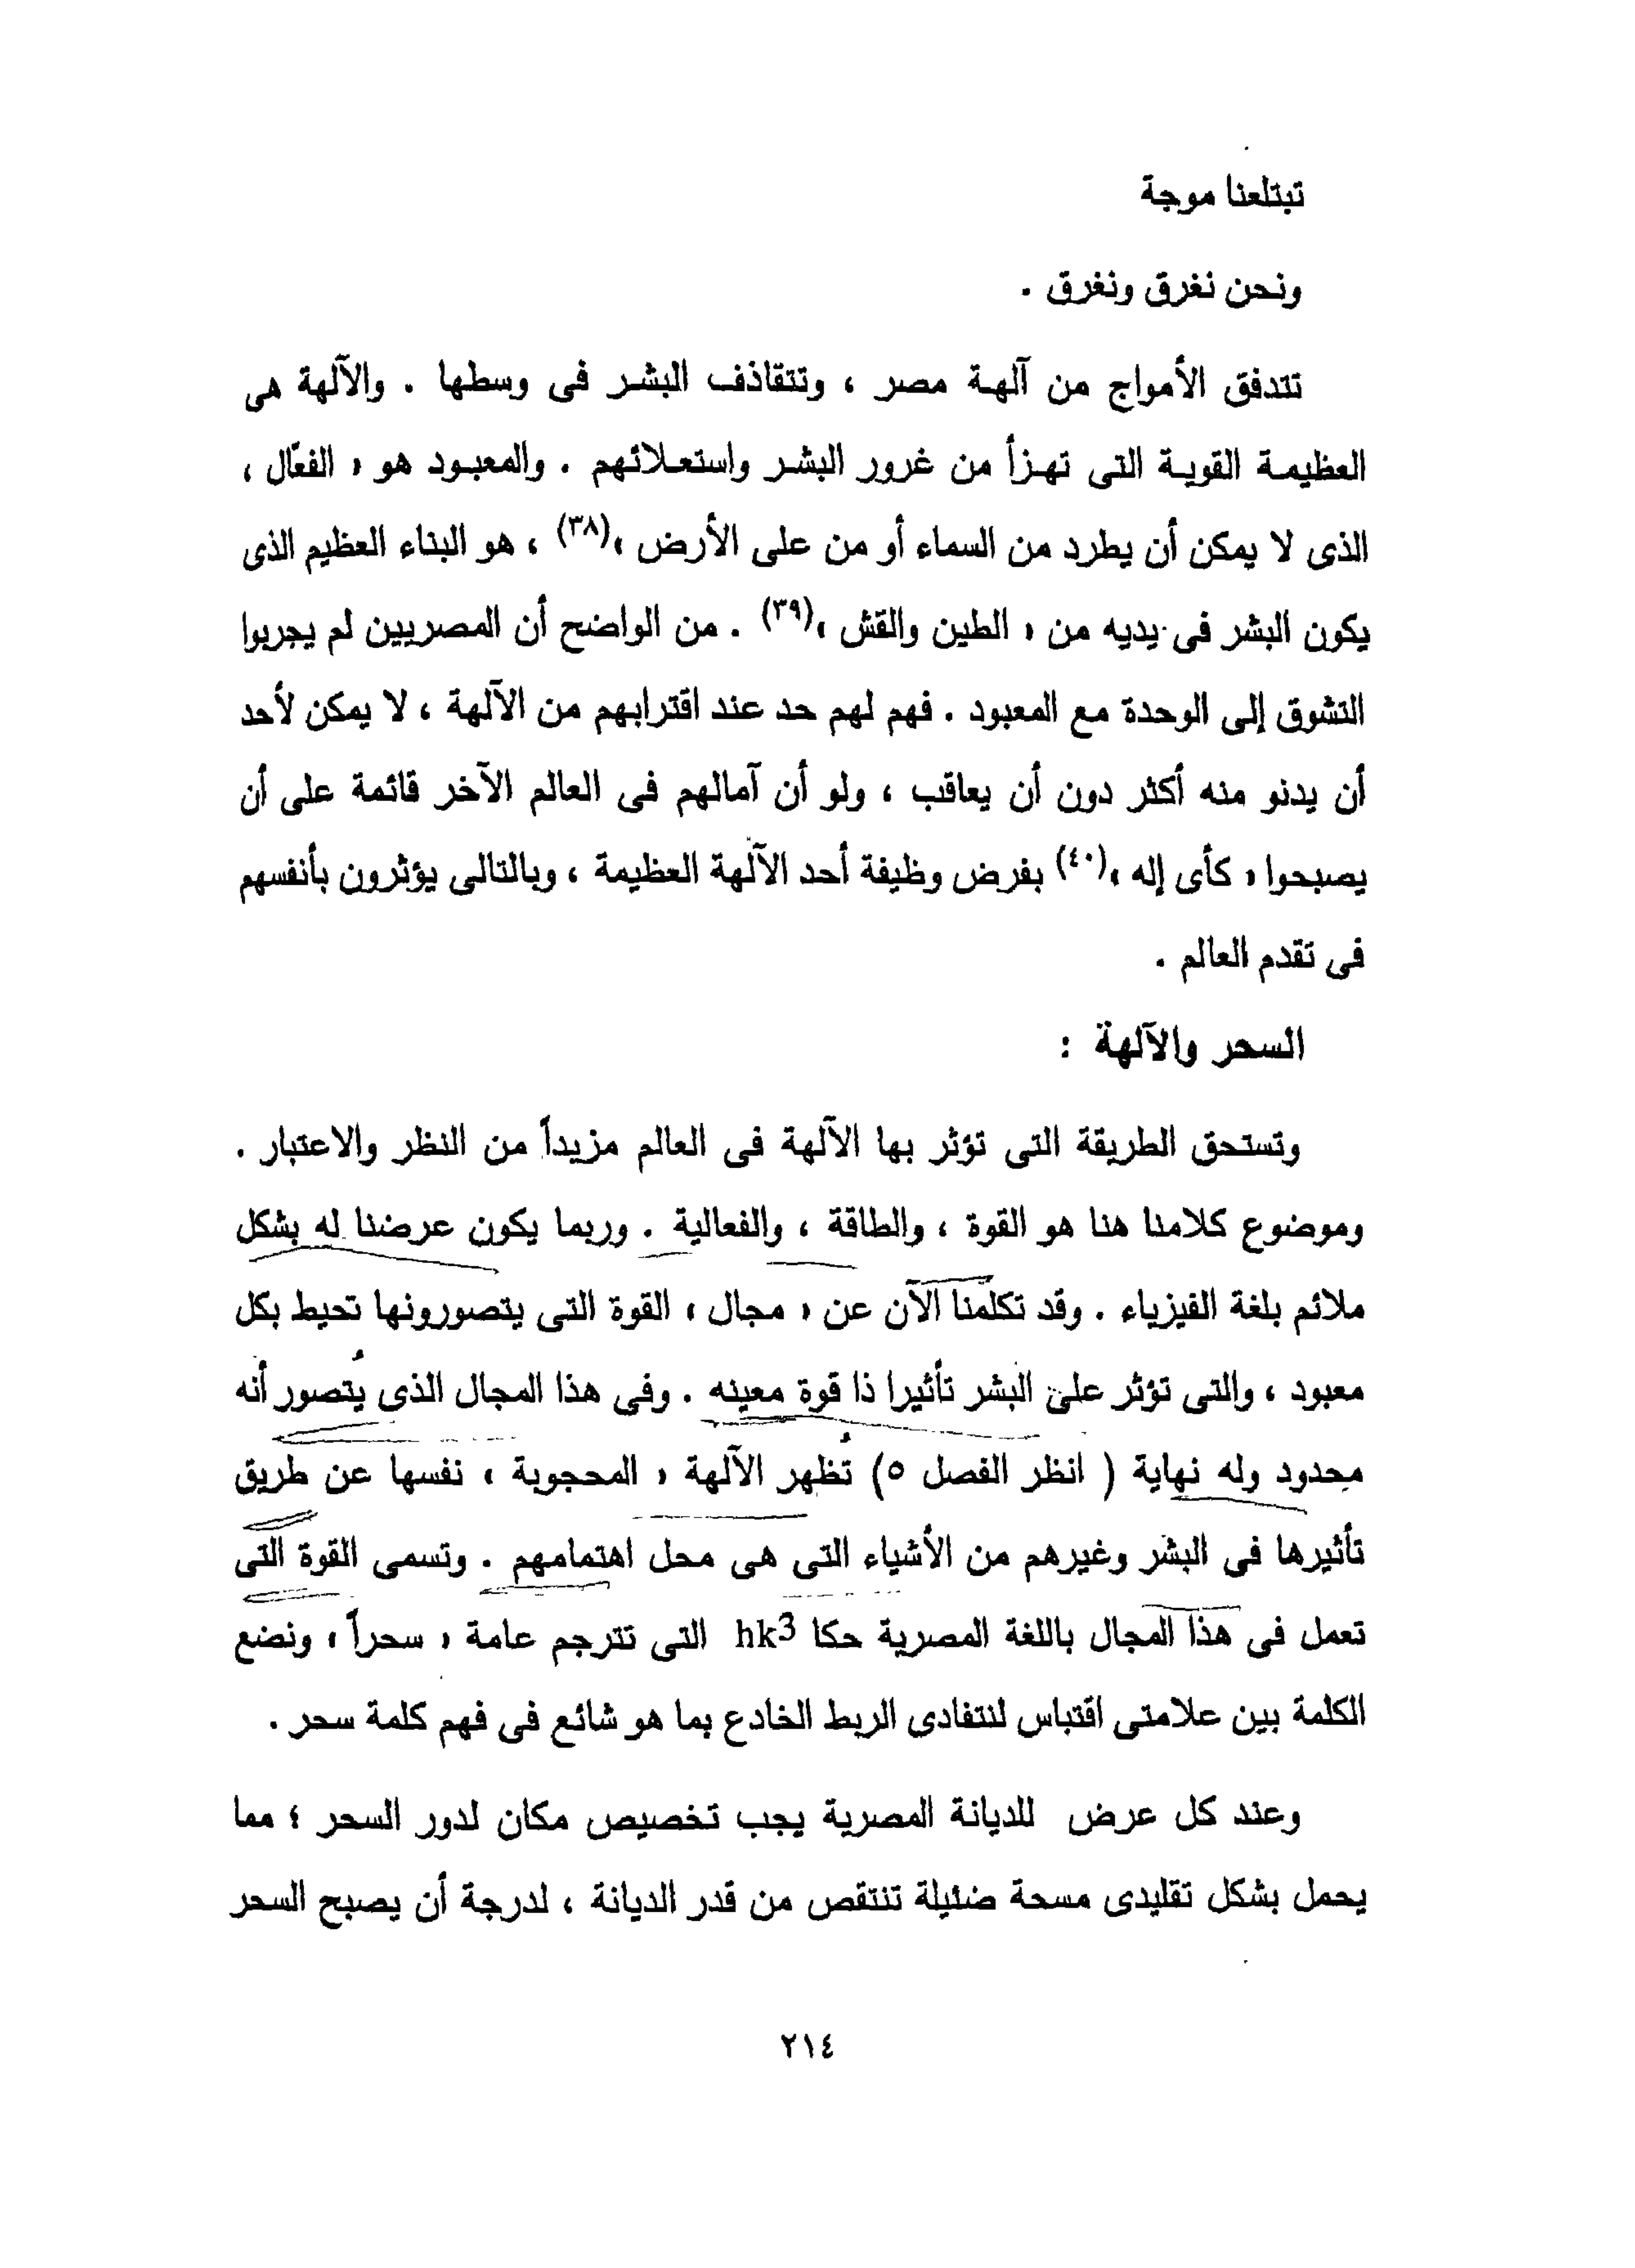 تبتلعنا موجة
ونحن نغرق ونغرق .
تتدفق الأمواج من آلهة مصر ، وتتقاذف البشر فى وسطها . والآلهة هى
العظيمة القوية التى تهزأ من غرور البشر واستعلائهم . والمعبود هو « الفعّال ،
الذى لا يمكن أن يطرد من السماء أو من على الأرض »(٣٨) ، هو البناء العظيم الذى
يكون البشر فى يديه من « الطين والقش »(٣٩) . من الواضح أن المصريين لم يجربوا
التشوق إلى الوحدة مع المعبود . فهم لهم حد عند اقترابهم من الآلهة ، لا يمكن لأحد
أن يدنو منه أكثر دون أن يعاقب ، ولو أن آمالهم فى العالم الآخر قائمة على أن
يصبحوا « كأى إله »(٤٠) بفرض وظيفة أحد الآلهة العظيمة ، وبالتالى يؤثرون بأنفسهم
فى تقدم العالم .
السحر والآلهة :
وتستحق الطريقة التى تؤثر بها الآلهة فى العالم مزيداً من النظر والاعتبار .
وموضوع كلامنا هنا هو القوة ، والطاقة ، والفعالية . وربما يكون عرضنا له بشكل
ملائم بلغة الفيزياء . وقد تكلمنا الآن عن « مجال » القوة التى يتصورونها تحيط بكل
معبود ، والتى تؤثر على البشر تأثيرا ذا قوة معينه . وفى هذا المجال الذى يُتصور أنه
محدود وله نهاية ( انظر الفصل ٥) تُظهر الآلهة « المحجوبة » نفسها عن طريق
تأثيرها فى البشر وغيرهم من الأشياء التى هى محل اهتمامهم . وتسمى القوة التى
تعمل فى هذا المجال باللغة المصرية حكا hk3 التى تترجم عامة « سحراً » ونضع
الكلمة بين علامتى اقتباس لنتفادى الربط الخادع بما هو شائع فى فهم كلمة سحر .
وعند كل عرض للديانة المصرية يجب تخصيص مكان لدور السحر ؛ مما
يحمل بشكل تقليدى مسحة ضئيلة تنتقص من قدر الديانة ، لدرجة أن يصبح السحر
٢١٤